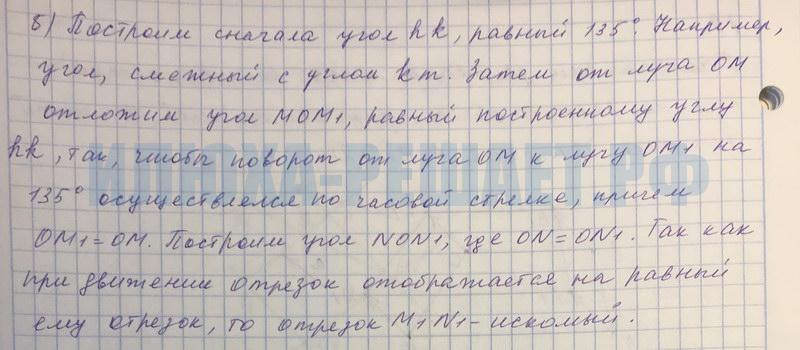 б) Построим сначала угол hk, равный 135°. Например,
угол, смежный с углом km. Затем от луча OM
отложим угол MOM1, равный построенному углу
hk, так, чтобы поворот от луча OM к лучу OM1 на
135° осуществлялся по часовой стрелке, причем
OM1=OM. Построим угол NON1, где ON=ON1. Так как
при движении отрезок отображается на равный
ему отрезок, то отрезок M1N1-искомый.
-РЕШАЕТ.РФ